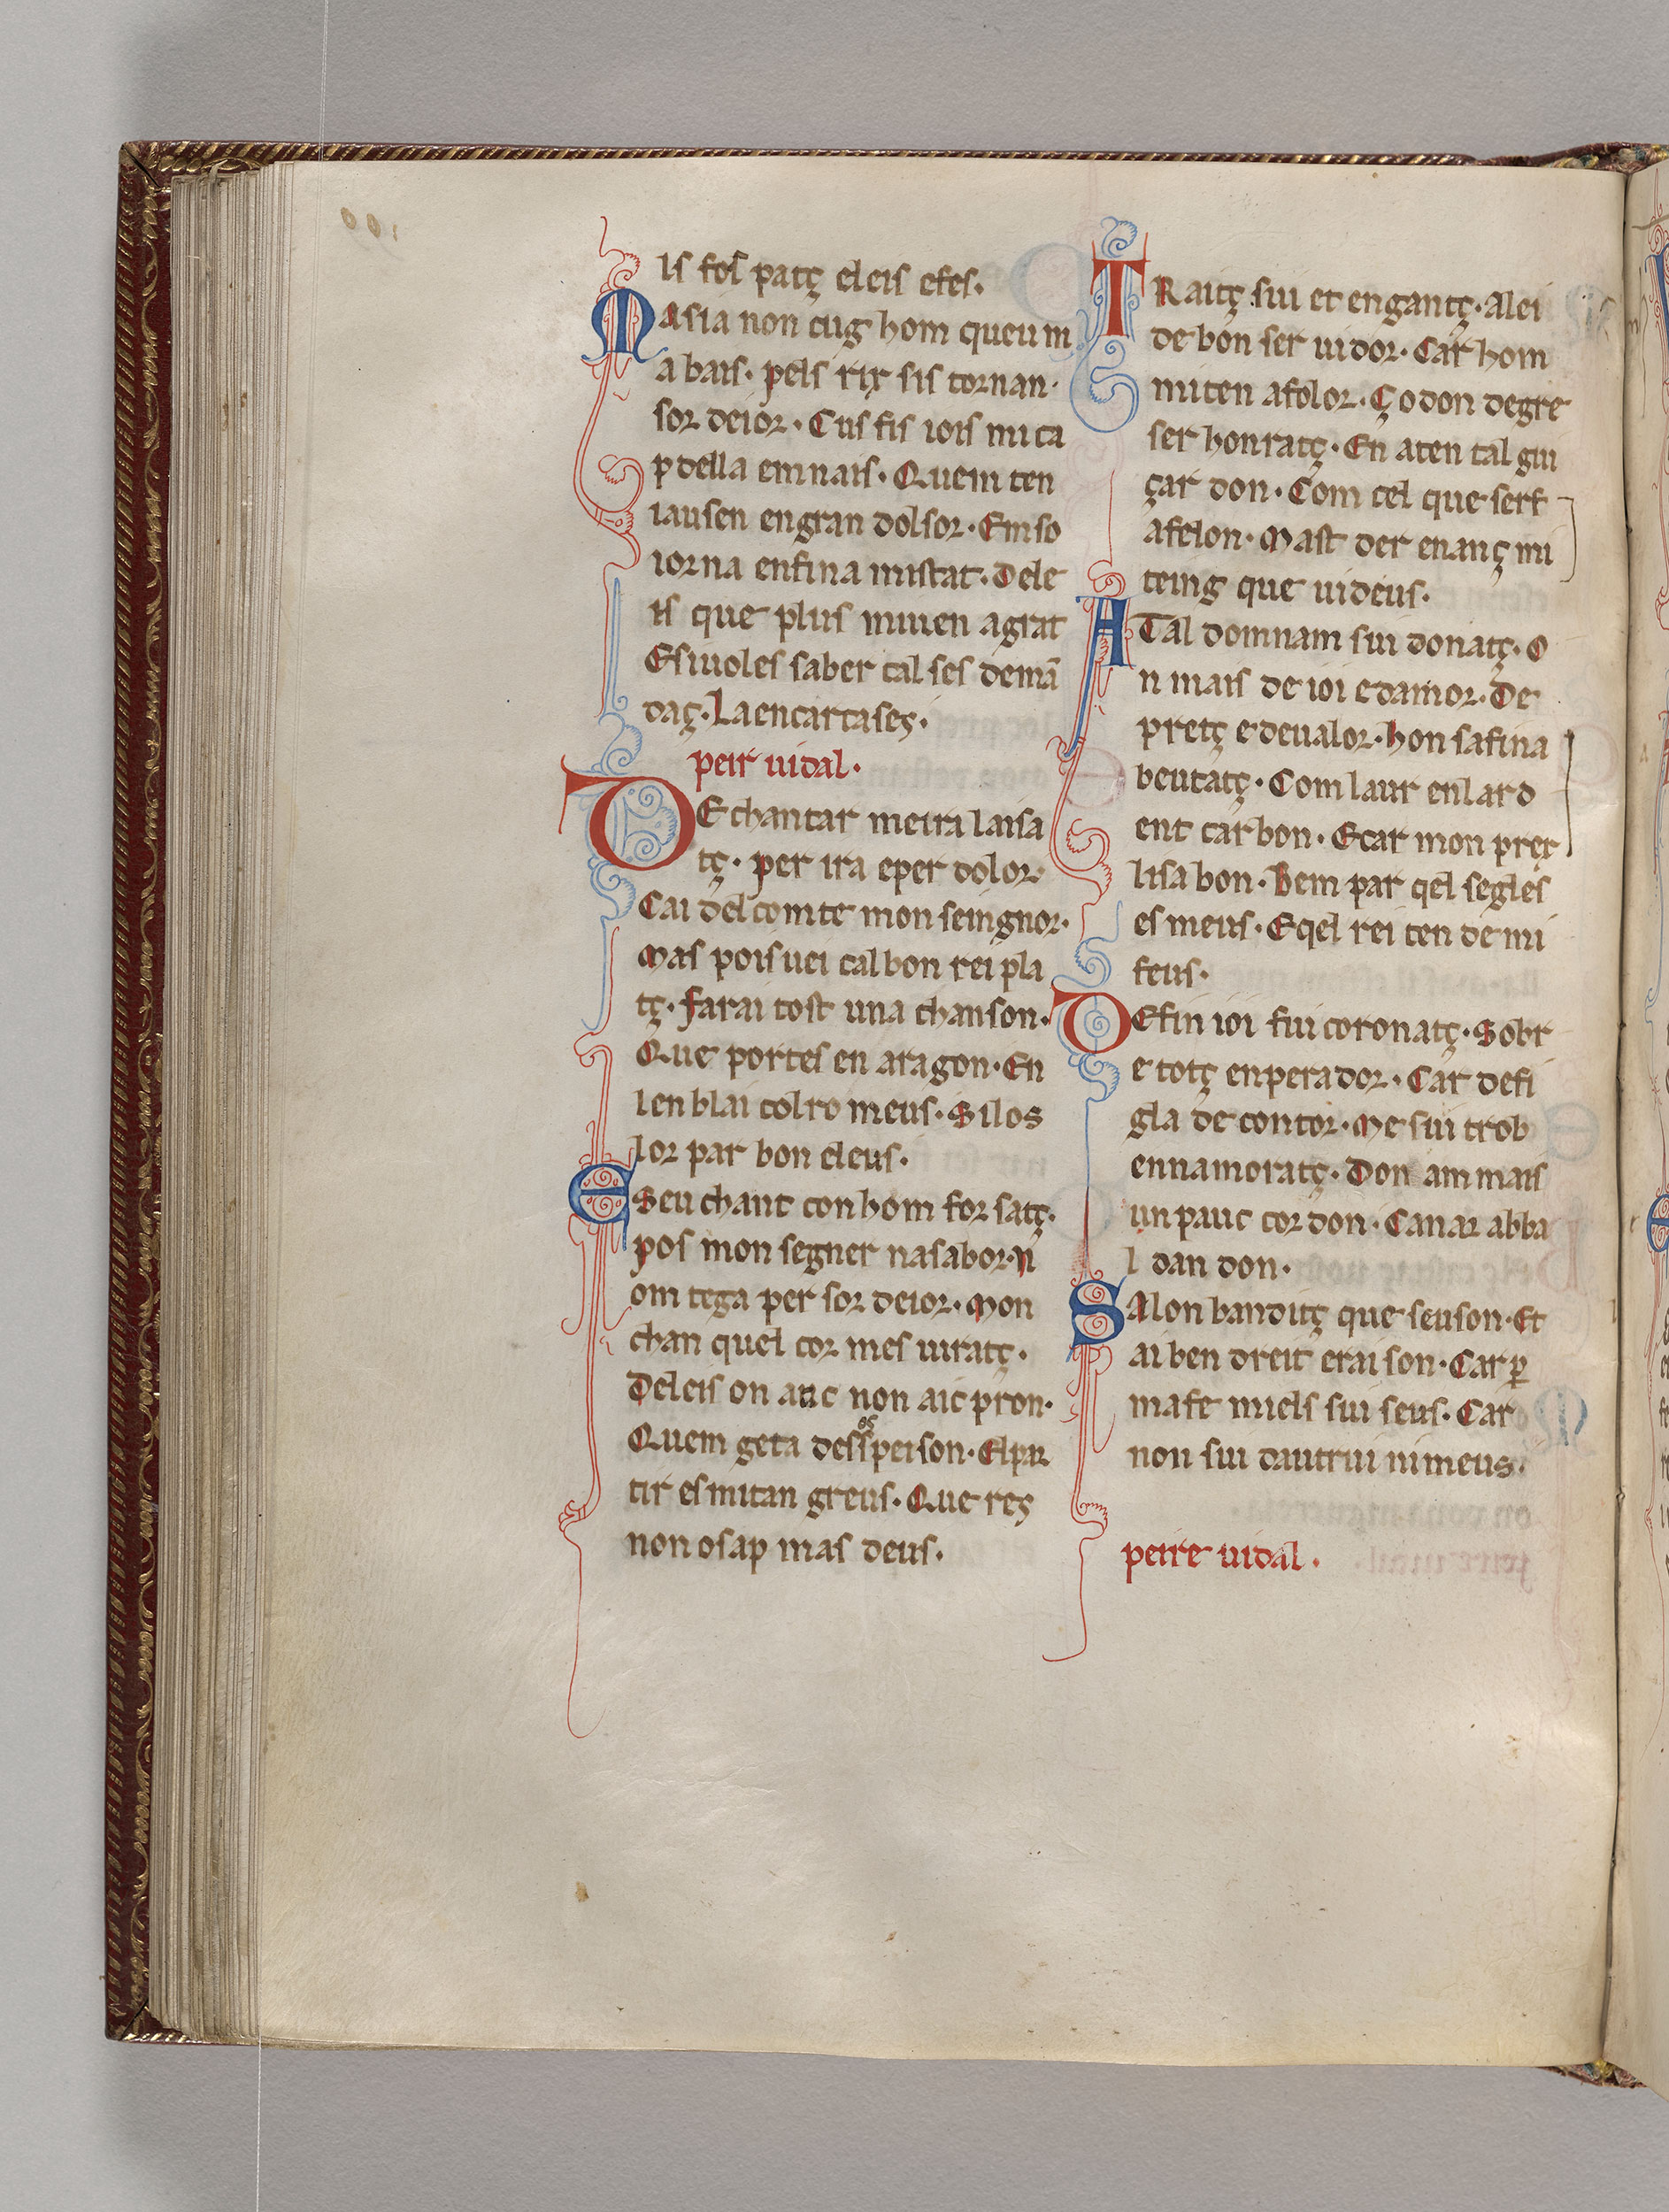 is fos patç eleis efes.
Masia non cug hom queu m
abais. pels rix sis tornan.
sor deior. Cus fis iois mi ca
p della em nais. Quem ten
iausen en gran dolsor. Em so
iorna en fina mistat. Dele
is que plus miuen agrat
Esiuoles saber cal ses demã
daç. La en cartases.
peir uidal.
DE chantar mera laisa
tç. per ira e per dolor.
Cai del comte mon seingnor.
Mas pois uei cal bon rei pla
tç. Farai tost una chanson.
Que portes en aragon. En
lenblai colro meus. Silos
lor par bon eleus.
Eseu chant con hom for satç.
pos mon segner nasabor. N
om tega per sor deior. Mon
chan quel cor mes uiratç.
Deleis on anc non aic pron.
Quem geta desspeison. El par
tir es mitan greus. Que reç
non o sap mas deus.
TRaitç sui et engantç. A lei
de bon seruidor. Car hom
miten afolor. Ço don degre
ser honratç. En aten tal gui
çar don. Com cel que serf
afelon. Mast der enanç mi
teing que uideus.
ATal domnam sui donatç. O
n mais de ioi e damor. De
pretç e deualor. Hon safina
beutatç. Com laur en lard
ent carbon. E car mon prex
lisa bon. Bem par qel segles
es meus. Eqel rei ten de mi
feus.
DE fin ioi fui coronatç. Sobr
e totç enperador. Car defi
gla de contor. Me sui trob
ennamoratç. Don am mais
un pauc cordon. Canar abba
l dan don.
SAlon banditç que seuson. Et
ai ben dreit eraison. Car p
ma fe miels sui seus. Car
non sui dautrui ni meus.
peire uidal.